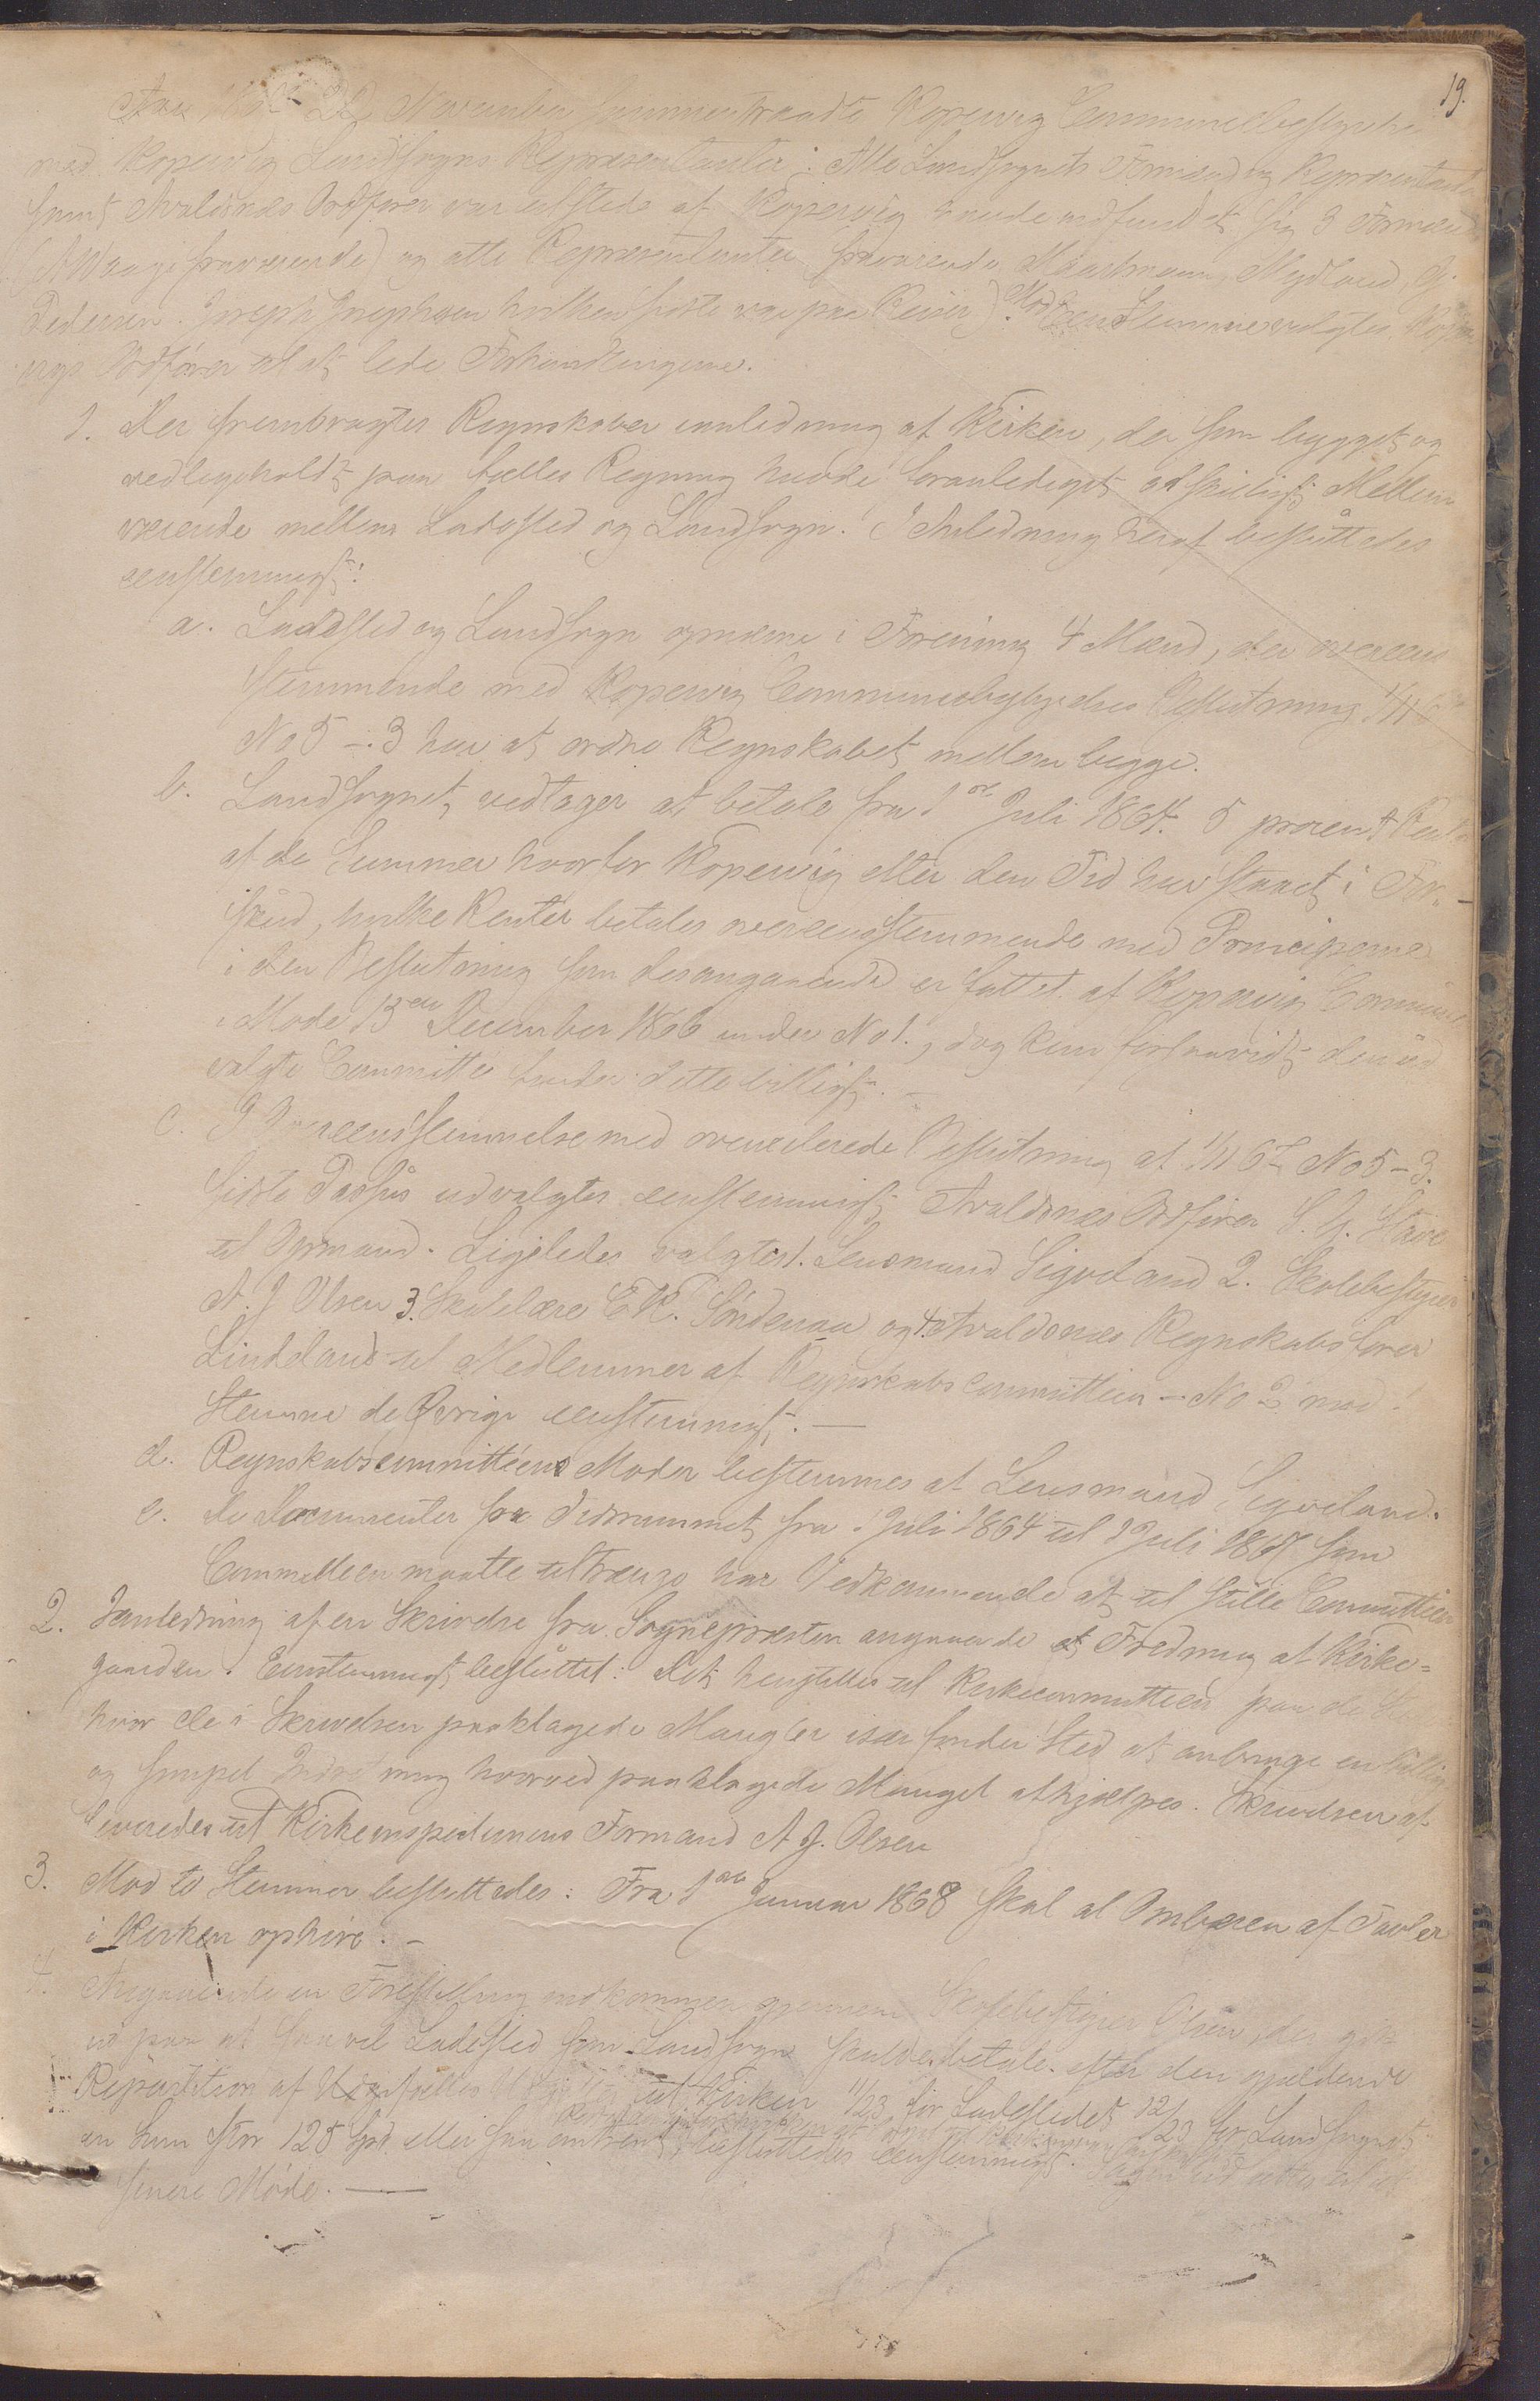 19.
November Kopervig Communebestyrelse
med Kopervig Landsogns Repræsentanter; Alle Landsognets Formænd og Repræsentanter
samt Avaldsnæs Ordfører var tilstede af Kopervig havde indfundet sig 3 Formænd
(A Waage fraværende) og otte Repræsentanter fraværende Maartmann, Mydland, G.
Pedersen. Joseph Josephsen hvilken sidste var paa Reiser). Mod een Stemme valgtes Koper-
vigs Ordfører til at lede Forhandlingerne.
1. Der frembragtes Regnskaber i anledning af Kirken, der som bygget og
vedligeholdt paa fælles Regning havde foranlediget adskilligt Mellem-
værende mellem Ladested og Landsogn. I Anledning heraf besluttedes
eenstemmigt:
a. Ladested og Landsogn opnævne i Forening 4 Mænd, der overeens
stemmende med Kopervig Communebestyrelses Beslutning 1/11
No 5 - 3 har at ordne Regnskabet mellem begge.
b. Landsognet vedtager at betale fra 1ste Juli 1864. 5 procent Rente
af de Summer hvorfor Kopervig efter den Tid har staaet i For-
skud, hvilke Renter betales overeensstemmende med Principerne
i den Beslutning som desangaaende er fattet af Kopervig Commune
i Møde 13de December 1866 under No 1., dog kun forsaavidt den ud
valgte Committe finder dette billigt.
c. I Overeensstemmelse med ovenciterede Beslutning af 1/11 67 No 5 - 3.
sidste Passus udvalgtes eenstemmigt Avaldsnæs Ordfører S. G. Stave
til Opmand. Ligeledes valgtes 1. Lensmand Sigveland 2. Skolebestyrer
A. J Olsen 3. Skolelære E K. Søndenaa og 4. Avaldsnæs Regnskabsfører
Lindeland til Medlemmer af Regnskabscommitteen - No 2 mod 1
Stemme de Øvrige eenstemmigt.
d. Regnskabscommitteens Møder bestemmes af Lensmand Sigveland.
e. de Documenter fra Tidsrummet fra 1 Juli 1864 til 1 Juli 1867 som
Committeen maatte tiltrænge har Vedkommende at tilstille Committeen
2. I anledning af en Skrivelse fra Sognepræsten angaaende Fredning af Kirke-
gaarden. Eenstemmigt besluttet: Det henstilles til Kirkecommitteen paa de Steder
hvor de i Skrivelsen paaklagede Mangler især finder Sted at anbringe en billig
og simpel Indretning hvorved paaklagede Mangel afhjælpes. Skrivelsen af-
leveredes til Kirkeinspectionens Formand A J. Olsen
3. Mod to Stemmer besluttedes: Fra 1ste Januar 1868 skal al Ombæren af Tavler
i Kirken ophøre. -
4. Angaaende en Forestilling indkommen gjennem Skolebestyrer Olsen, der gik
ud paa at saavel Ladested som Landsogn skulde betale efter den gjældende
Repartition af til Kirken 11/23 for Ladestedet 12/23 for Landsognet
en Sum stor 125 Spd. eller saa omtrent, besluttedes eenstemmigt. Sagen udsættes til et
senere Møde.